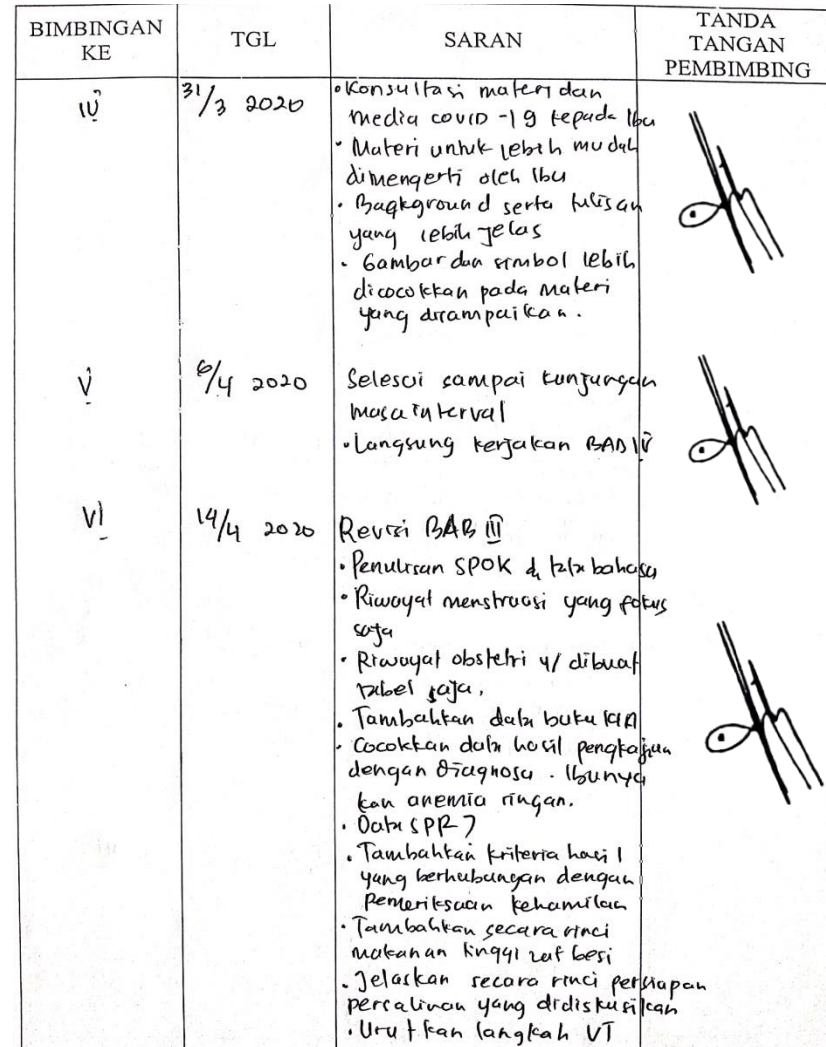 BIMBINGAN KE
TGL
SARAN
TANDA TANGAN PEMBIMBING
IV
31/3 2020
• Konsultasi materi dan
media covid -19 kepada Ibu
• Materi untuk lebih mudah
dimengerti oleh Ibu
• Bagkground serta tulisan
yang lebih jelas
• Gambar dan simbol lebih
dicocokkan pada materi
yang disampaikan.
V
6/4 2020
Selesai sampai kunjungan
masa interval
• Langsung kerjakan BAB IV
VI
14/4 2020
Revisi BAB III
• Penulisan SPOK & tata bahasa
• Riwayat menstruasi yang fokus
saja
• Riwayat obstetri u/ dibuat
tabel saja.
• Tambahkan data buku KIA
• Cocokkan data hasil pengkajian
dengan diagnosa. Ibunya
kan anemia ringan.
• Data SPR?
• Tambahkan kriteria hasil
yang berhubungan dengan
Pemeriksaan kehamilan
• Tambahkan secara rinci
makanan tinggi zat besi
• Jelaskan secara rinci persiapan
persalinan yang didiskusikan
• Urutkan langkah VT